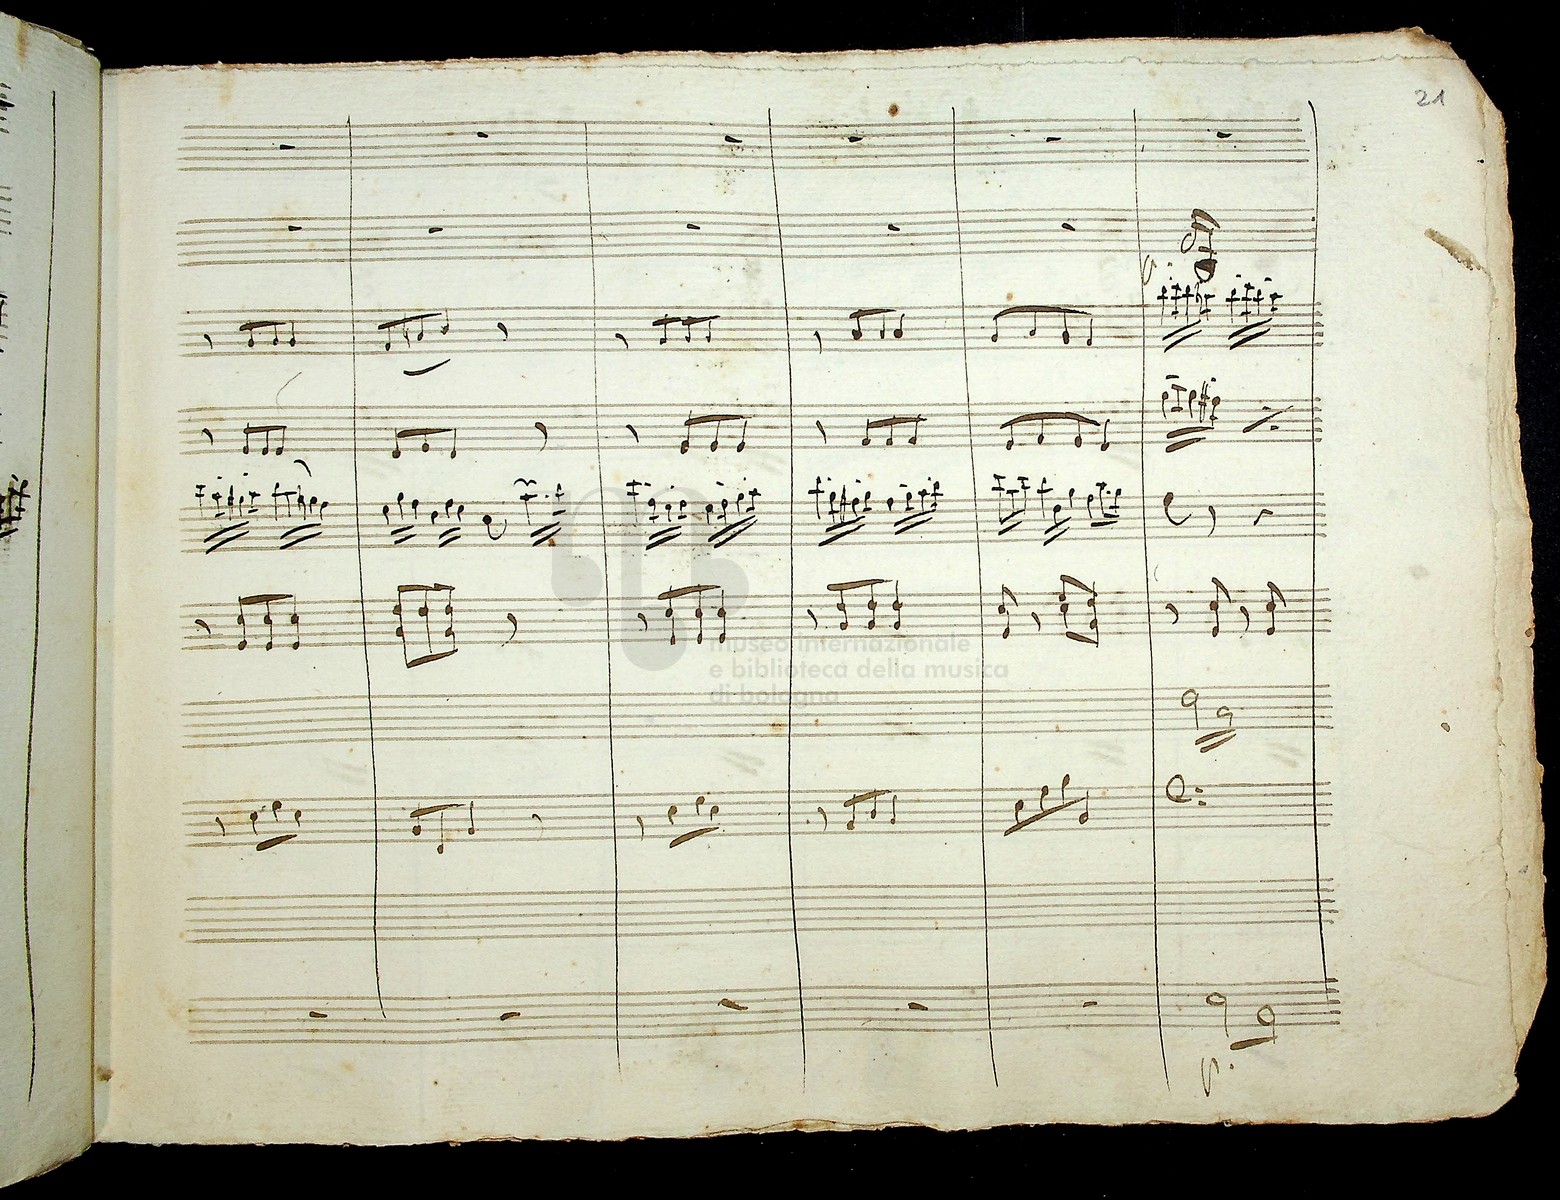 21
museo internazionale
e biblioteca della musica
di bologna